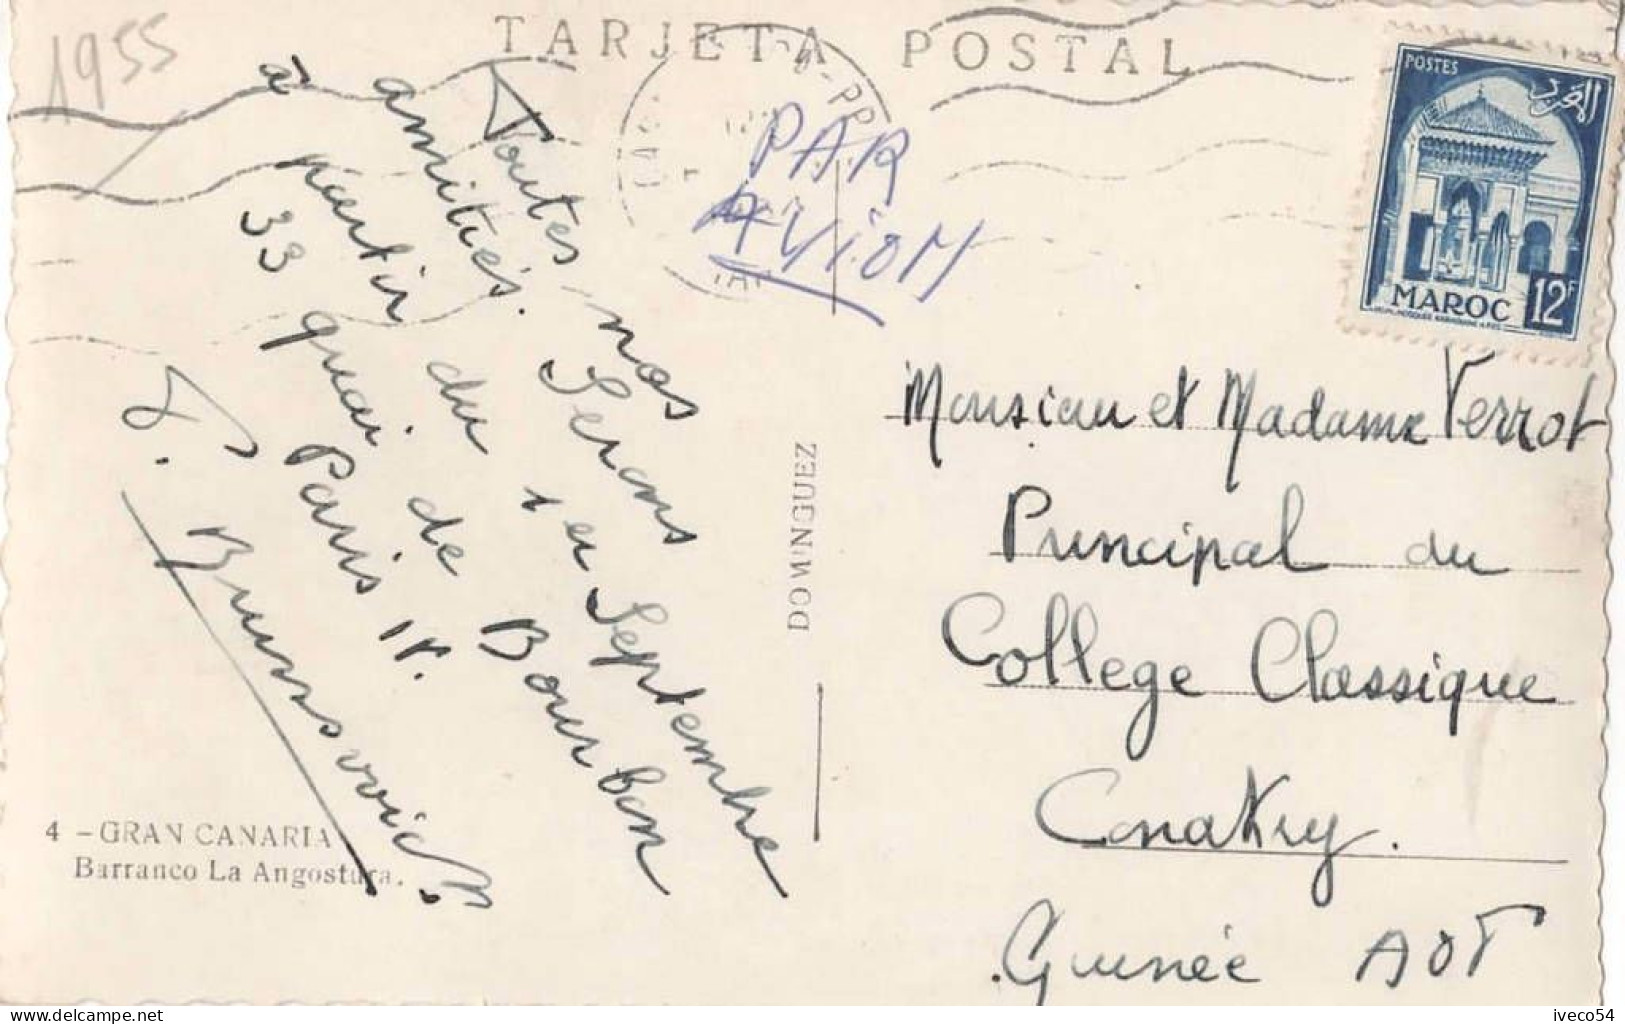 1955
TARJETA POSTAL
PAR
AVION
POSTES
المغرب
MAROC 12F
Toutes nos
amitiés. Serons
à partir du 1er Septembre
33 quai de Bourbon
Paris IV.
Monsieur et Madame Verrot
Principal du
College Classique
Conakry.
Guinée AOF
DOMINGUEZ
4 - GRAN CANARIA
Barranco La Angostura.
iveco54